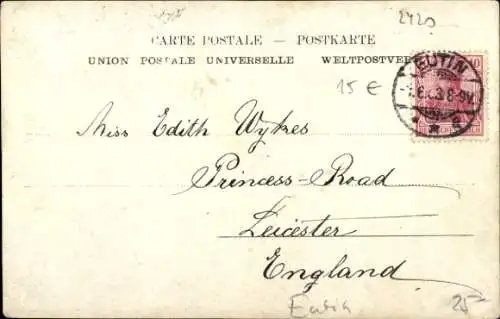 2420
CARTE POSTALE — POSTKARTE
UNION POSTALE UNIVERSELLE WELTPOSTVER
EUTIN
8-9V.
10
15 €
Miss Edith Wykes
Princess-Road
Leicester
England
Eutin
25-